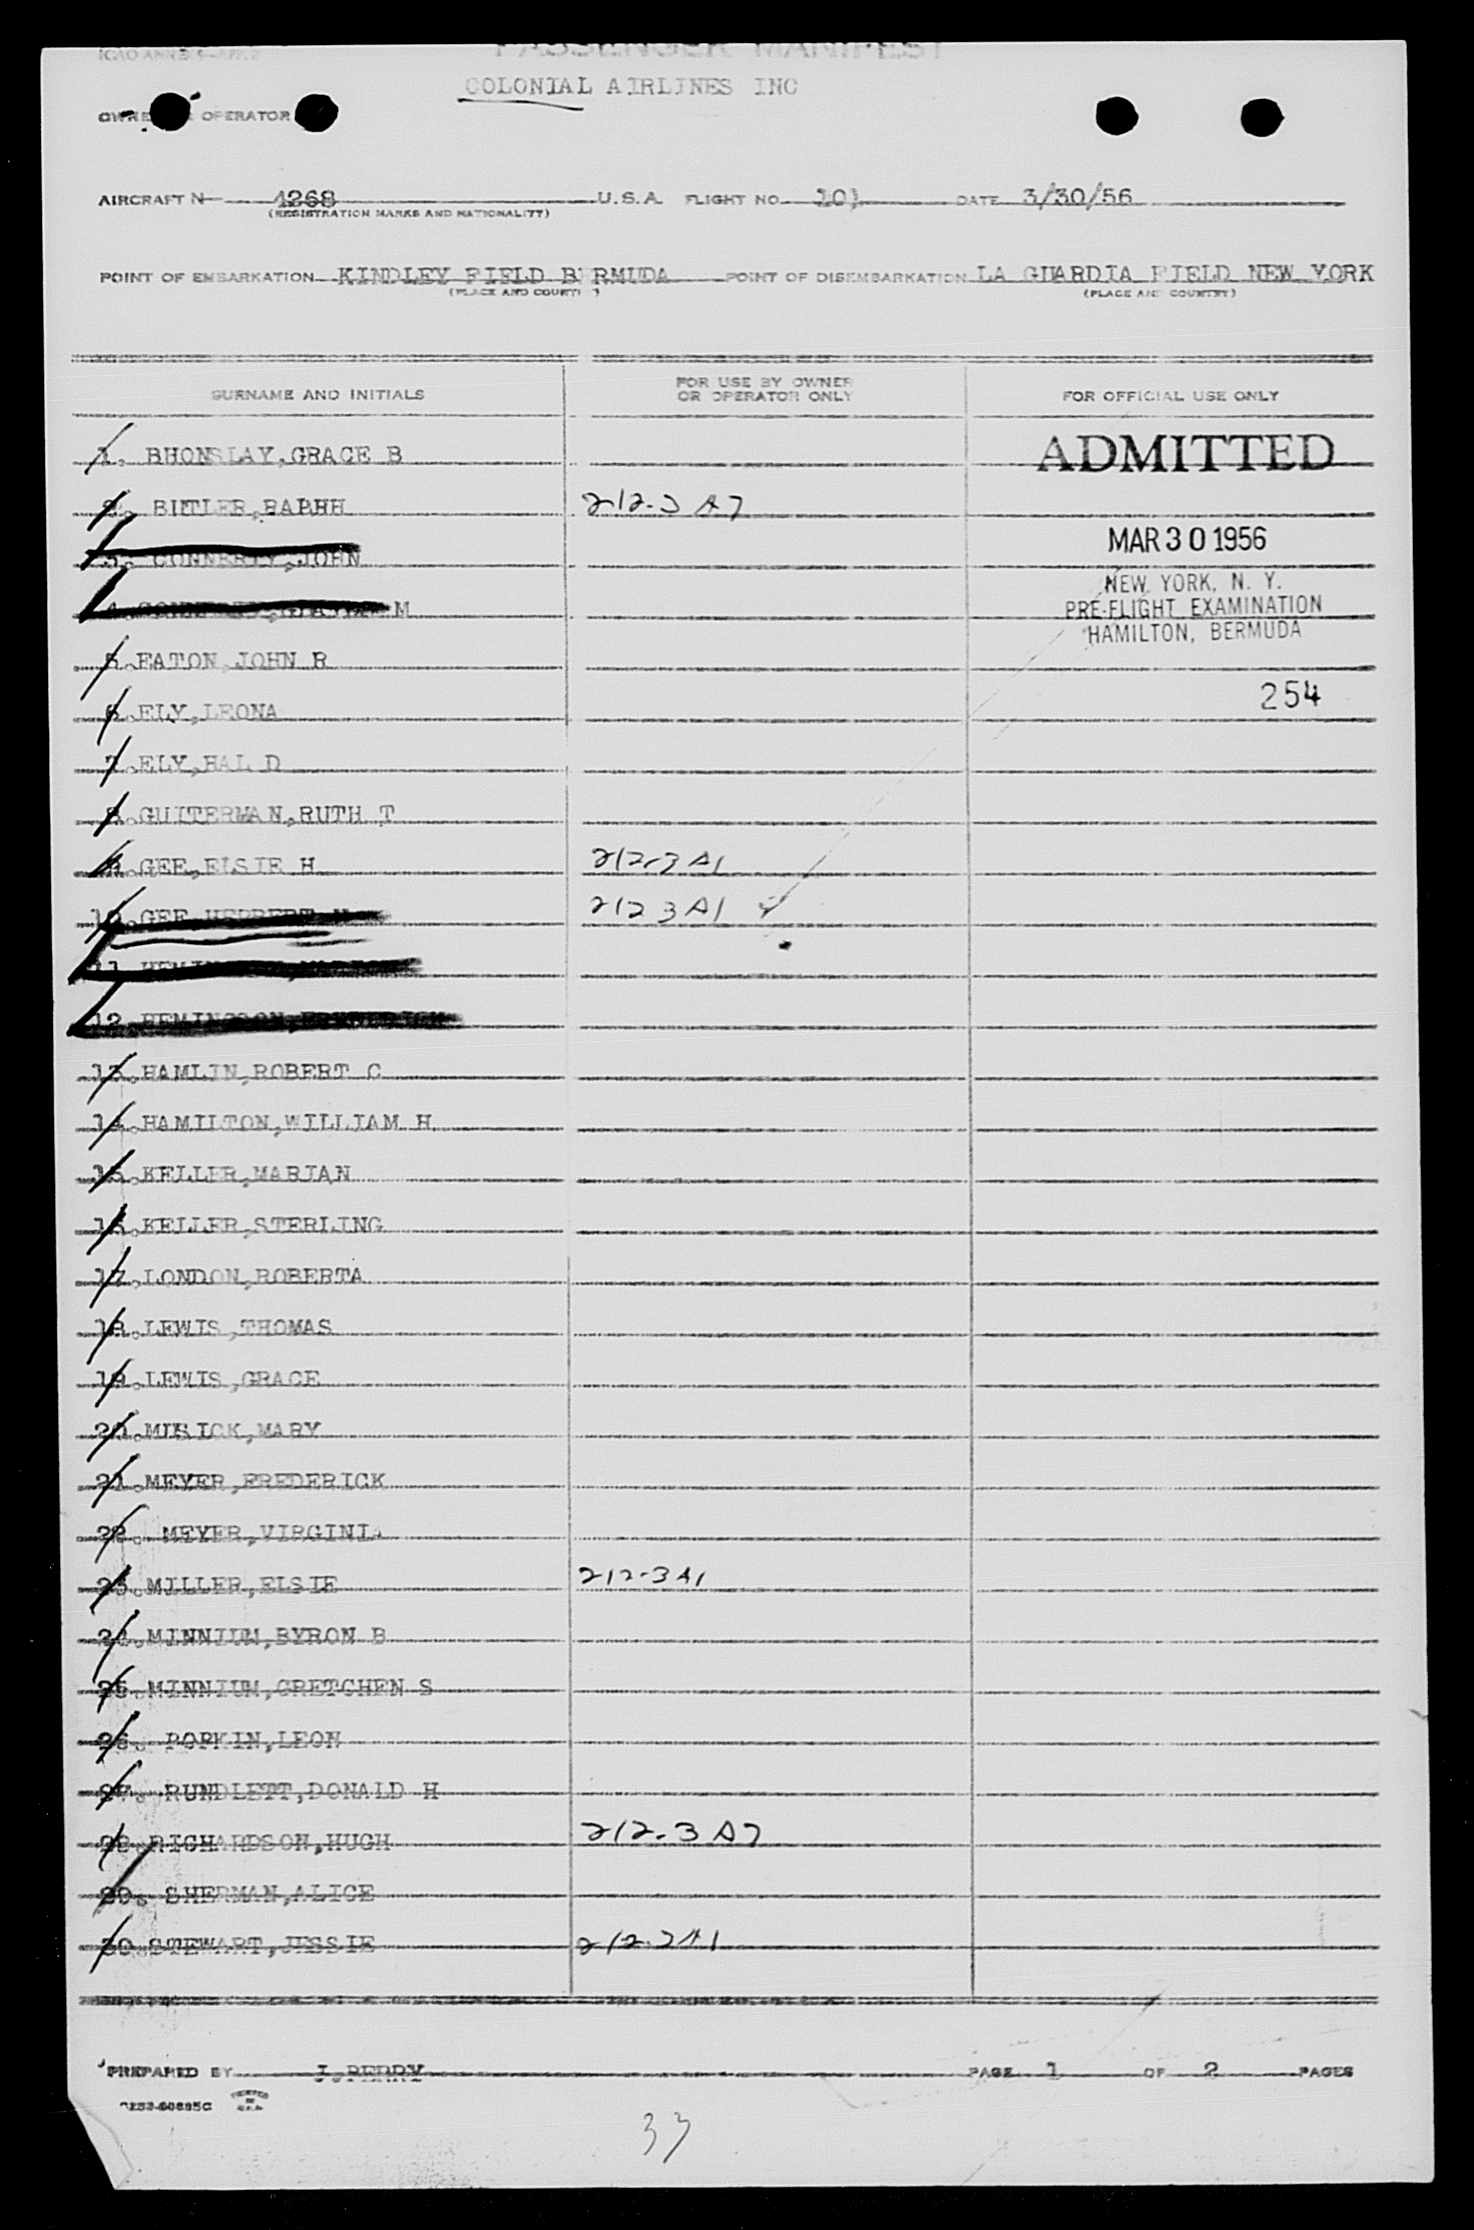 PASSENGER MANIFEST
COLONIAL AIRLINES INC
OPERATOR
AIRCRAFT N 4268 U.S.A. FLIGHT NO. 101 DATE 3/30/56
(REGISTRATION MARKS AND NATIONALITY)
POINT OF EMBARKATION KINDLEY FIELD BERMUDA POINT OF DISEMBARKATION LA GUARDIA FIELD NEW YORK
(PLACE AND COUNTRY) (PLACE AND COUNTRY)
SURNAME AND INITIALS FOR USE BY OWNER OR OPERATOR ONLY FOR OFFICIAL USE ONLY
1. BHONSLAY, GRACE B
ADMITTED
2. BUTLER, 212-3 A7
MAR 30 1956
3. CONNERTY, JOHN
NEW YORK, N. Y.
PRE-FLIGHT EXAMINATION
4. M
HAMILTON, BERMUDA
5. EATON, JOHN R
254
6. ELY, LEONA
7. ELY, HAL D
8. GUITERMAN, RUTH T
9. GEE, ELSIE H 212-3 A1
10. GEE, HERBERT M 212 3 A1
11.
12. FREDERICK
13. HAMLIN, ROBERT C
14. HAMILTON, WILLIAM H
15. KELLER, MARIAN
16. KELLER, STERLING
17. LONDON, ROBERTA
18. LEWIS, THOMAS
19. LEWIS, GRACE
20. MUSICK, MARY
21. MEYER, FREDERICK
22. MEYER, VIRGINIA
23. MILLER, ELSIE 212-3 A1
24. MINNIUM, BYRON B
25. MINNIUM, GRETCHEN S
26. POPKIN, LEON
27. RUNDLETT, DONALD H
28. RICHARDSON, HUGH 212-3 A7
29. SHERMAN, ALICE
30. STEWART, JESSIE 212-3 A1
PREPARED BY J. PERRY PAGE 1 OF 2 PAGES
PRINTED IN U.S.A.
33